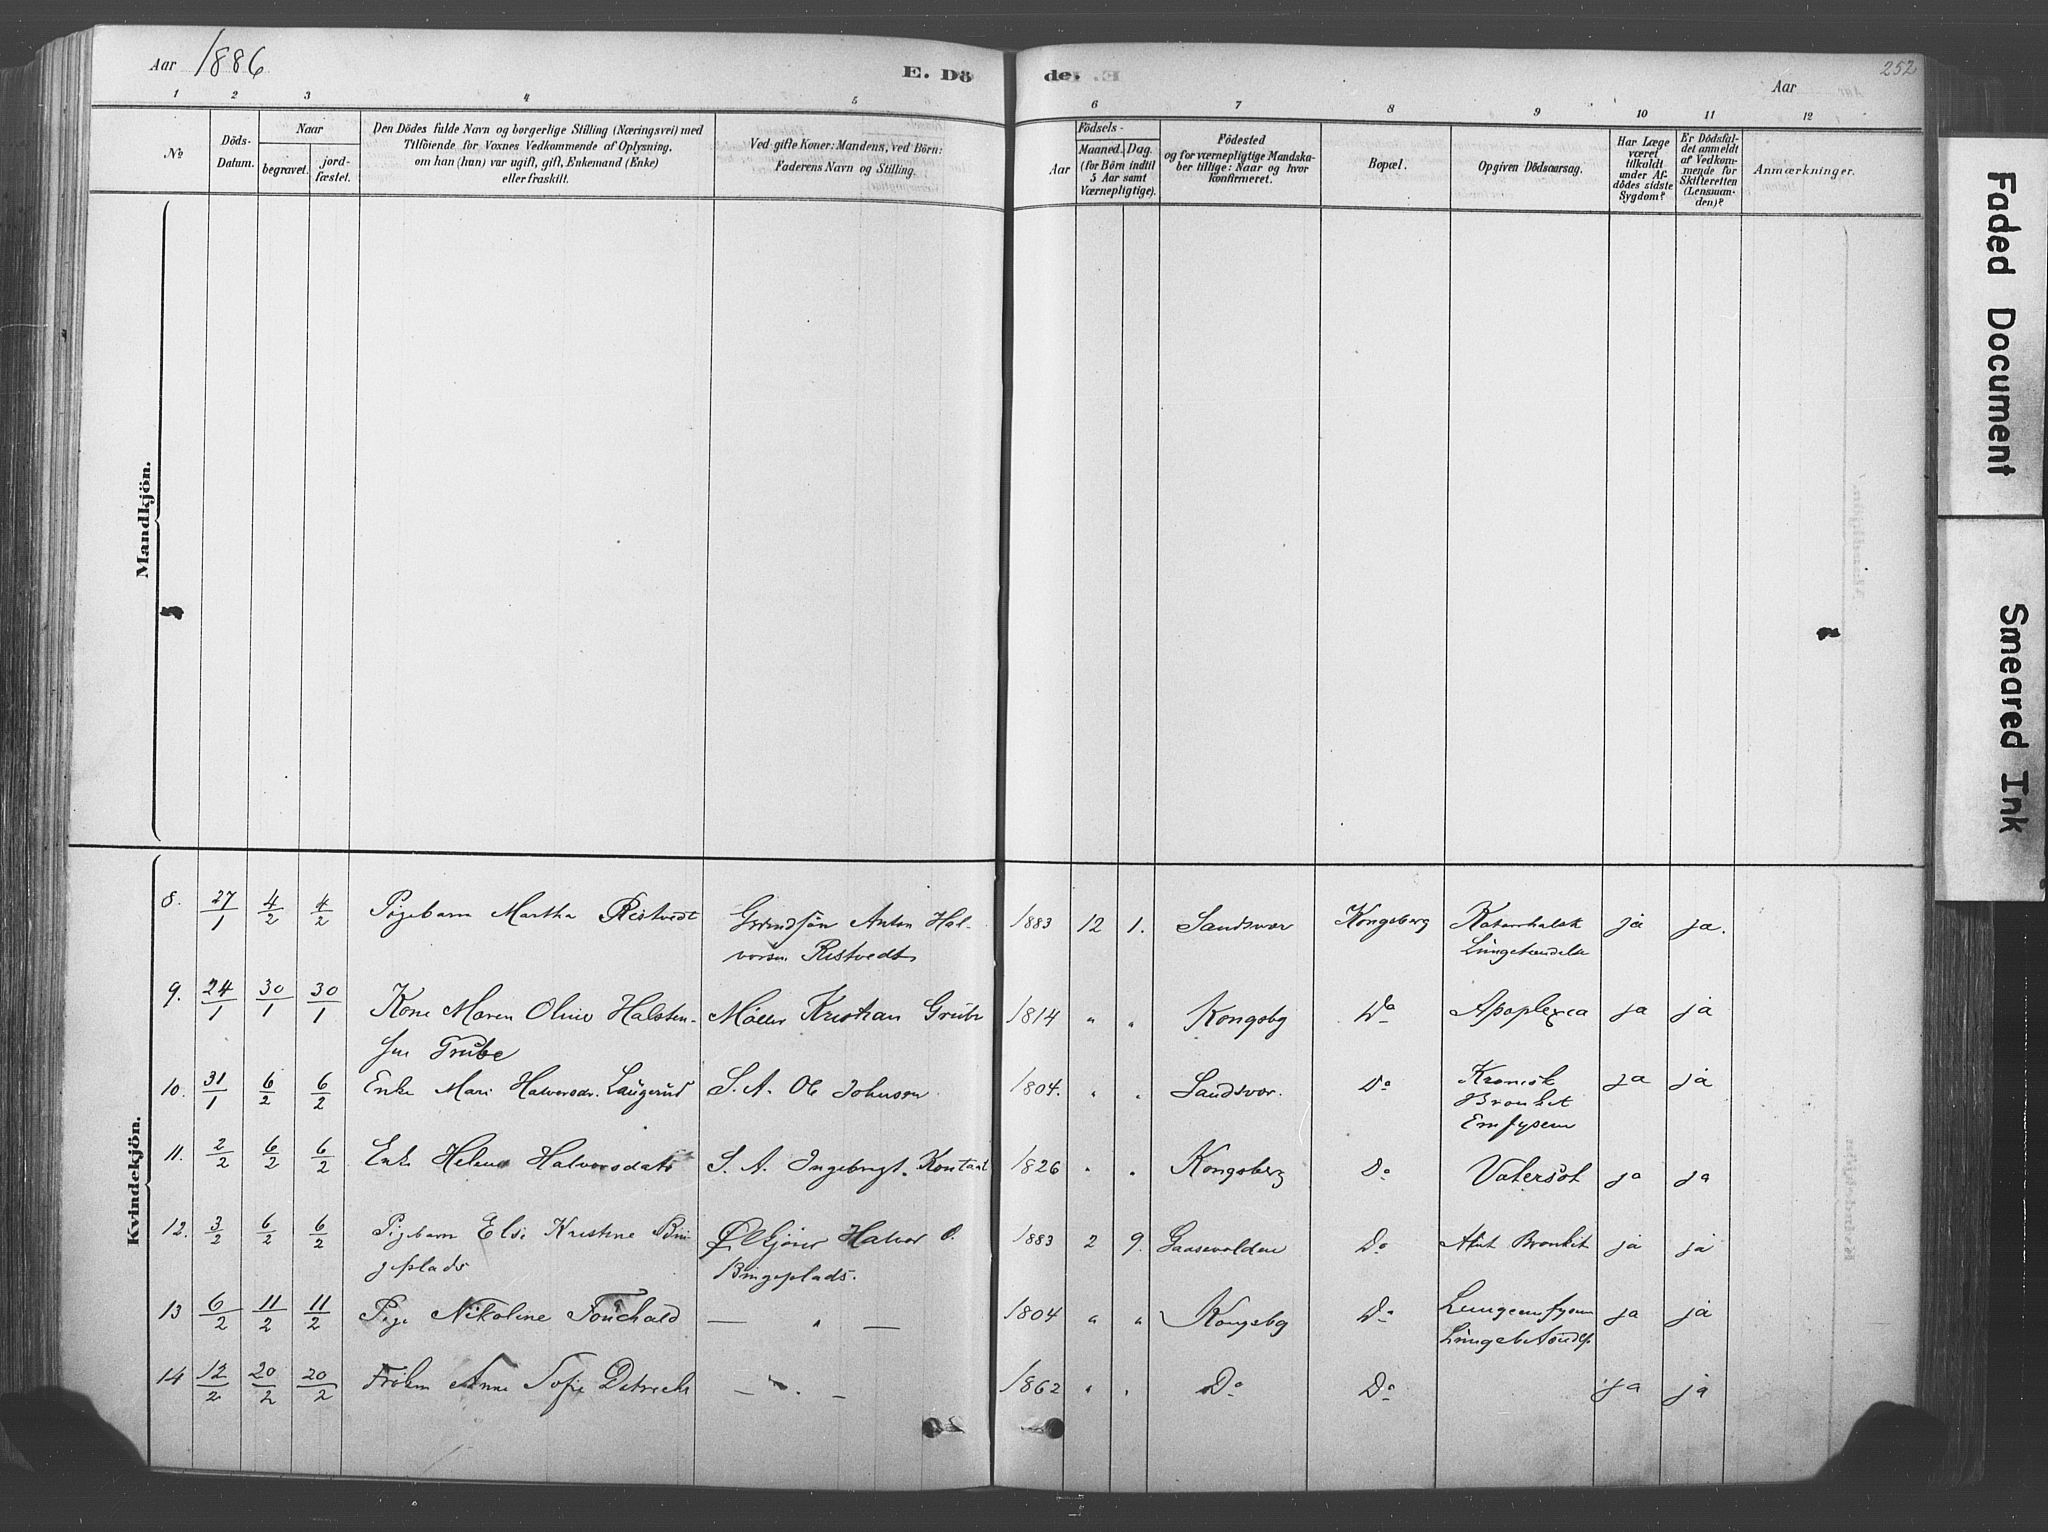 Aar 1886
E. Dö
de. E
Aar
252
1 2 3 4 5 6 7 8 9 10 11 12
No
Döds-
Datum.
Naar
begravet.
jord-
fæstet.
Den Dödes fulde Navn og borgerlige Stilling (Næringsvei) med
Tilföiende for Voxnes Vedkommende af Oplysning,
om han (hun) var ugift, gift, Enkemand (Enke)
eller fraskilt.
Ved gifte Koner: Mandens, ved Börn:
Faderens Navn og Stilling.
Födsels-
Aar
Maaned. Dag.
(for Börn indtil
5 Aar samt
Værnepligtige).
Födested
og for værnepligtige Mandska-
ber tillige: Naar og hvor
konfirmeret.
Bopæl.
Opgiven Dödsaarsag.
Har Læge
været
tilkaldt
under Af-
dödes sidste
Sygdom?
Er Dödsfal-
det anmeldt
af Vedkom-
mende for
Skifteretten
(Lensman-
den)?
Anmærkninger.
Mandkjön.
Kvindekjön.
8. 27/1 4/2 4/2 Pigebarn Martha Ristvedt Grundsjön Anton Hal- 1883 12 1. Sandsvær Kongsberg Katarrhalsk ja ja.
vorsen Ristvedt Lungebetændelse
9. 24/1 30/1 30/1 Kone Maren Oline Halsten- Møller Kristian Grube 1814 " " Kongsbg Do Apoplexia ja ja
sen Grube
10. 31/1 6/2 6/2 Enke Mari Halvorsdr. Laugerud S. A. Ole Johnsen 1804. " " Sandsvær. Do Kronisk ja ja
Bronkit
Emfysem
11. 2/2 6/2 6/2 Enke Helene Halvorsdatr S. A. Ingebregt. 1826 " " Kongsberg Do Vatersot ja ja
12. 3/2 6/2 6/2 Pigebarn Else Kristine Bin Halvor O. 1883 2 9. Do Akut Bronkit ja ja
geplads Bingeplads.
13 6/2 11/2 11/2 Pige Nikoline Fouchald — " — 1804 " " Kongsbg Do Lungeemfysem ja ja
Lungebetændelse
14 12/2 20/2 20/2 Frøken Anne Sofie — " — 1862 " " Do Do ja ja
Faded Document
Smeared Ink